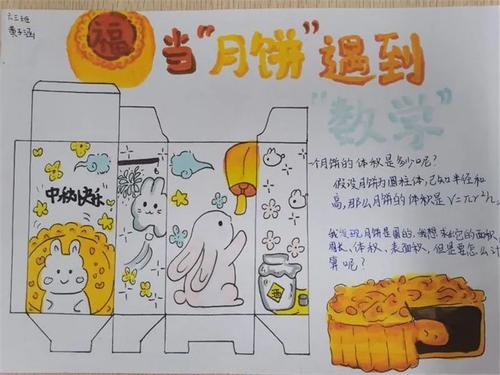 六三班
黄子涵
福
当"月饼"遇到
"数学"
中秋快乐
一个月饼的体积是多少呢?
假设月饼为圆柱体,已知半径和
高,那么月饼的体积是V=πr²h。
我发现月饼是圆的,我想求出它的面积、
周长、体积、表面积,但是要怎么计
算呢?
酒